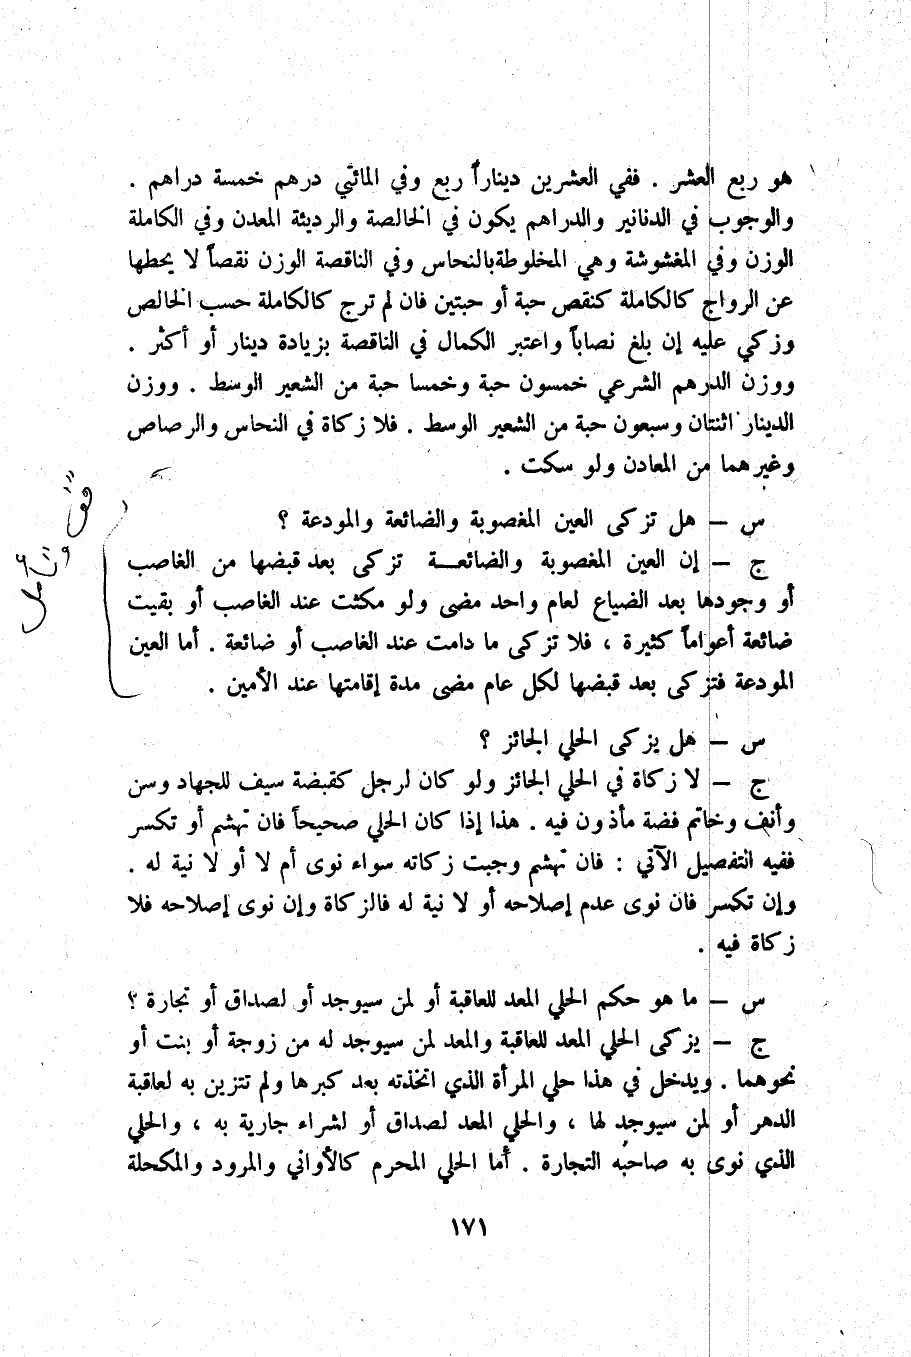 هو ربع العشر . ففي العشرين ديناراً ربع وفي المائتي درهم خمسة دراهم .
والوجوب في الدنانير والدراهم يكون في الخالصة والرديئة المعدن وفي الكاملة
الوزن وفي المغشوشة وهي المخلوطة بالنحاس وفي الناقصة الوزن نقصاً لا يحطها
عن الرواج كالكاملة كنقص حبة أو حبتين فان لم ترج كالكاملة حسب الخالص
وزكي عليه إن بلغ نصاباً واعتبر الكمال في الناقصة بزيادة دينار أو أكثر .
ووزن الدرهم الشرعي خمسون حبة وخمسا حبة من الشعير الوسط . ووزن
الدينار اثنتان وسبعون حبة من الشعير الوسط . فلا زكاة في النحاس والرصاص
وغيرهما من المعادن ولو سكت .
س – هل تزكى العين المغصوبة والضائعة والمودعة ؟
ج – إن العين المغصوبة والضائعـــة تزكى بعد قبضها من الغاصب
أو وجودها بعد الضياع لعام واحد مضى ولو مكثت عند الغاصب أو بقيت
ضائعة أعواماً كثيرة ، فلا تزكى ما دامت عند الغاصب أو ضائعة . أما العين
المودعة فتزكى بعد قبضها لكل عام مضى مدة إقامتها عند الأمين .
قف وتأمل
س – هل يزكى الحلي الجائز ؟
ج – لا زكاة في الحلي الجائز ولو كان لرجل كقبضة سيف للجهاد وسن
وأنف وخاتم فضة مأذون فيه . هذا إذا كان الحلي صحيحاً فان تهشم أو تكسر
ففيه التفصيل الآتي : فان تهشم وجبت زكاته سواء نوى أم لا أو لا نية له .
وإن تكسر فان نوى عدم إصلاحه أو لا نية له فالزكاة وإن نوى إصلاحه فلا
زكاة فيه .
س – ما هو حكم الحلي المعد للعاقبة أو لمن سيوجد أو لصداق أو تجارة ؟
ج – يزكى الحلي المعد للعاقبة والمعد لمن سيوجد له من زوجة أو بنت أو
نحوهما . ويدخل في هذا حلي المرأة الذي اتخذته بعد كبرها ولم تتزين به لعاقبة
الدهر أو لمن سيوجد لها ، والحلي المعد لصداق أو لشراء جارية به ، والحلي
الذي نوى به صاحبه التجارة . أما الحلي المحرم كالأواني والمرود والمكحلة
١٧١